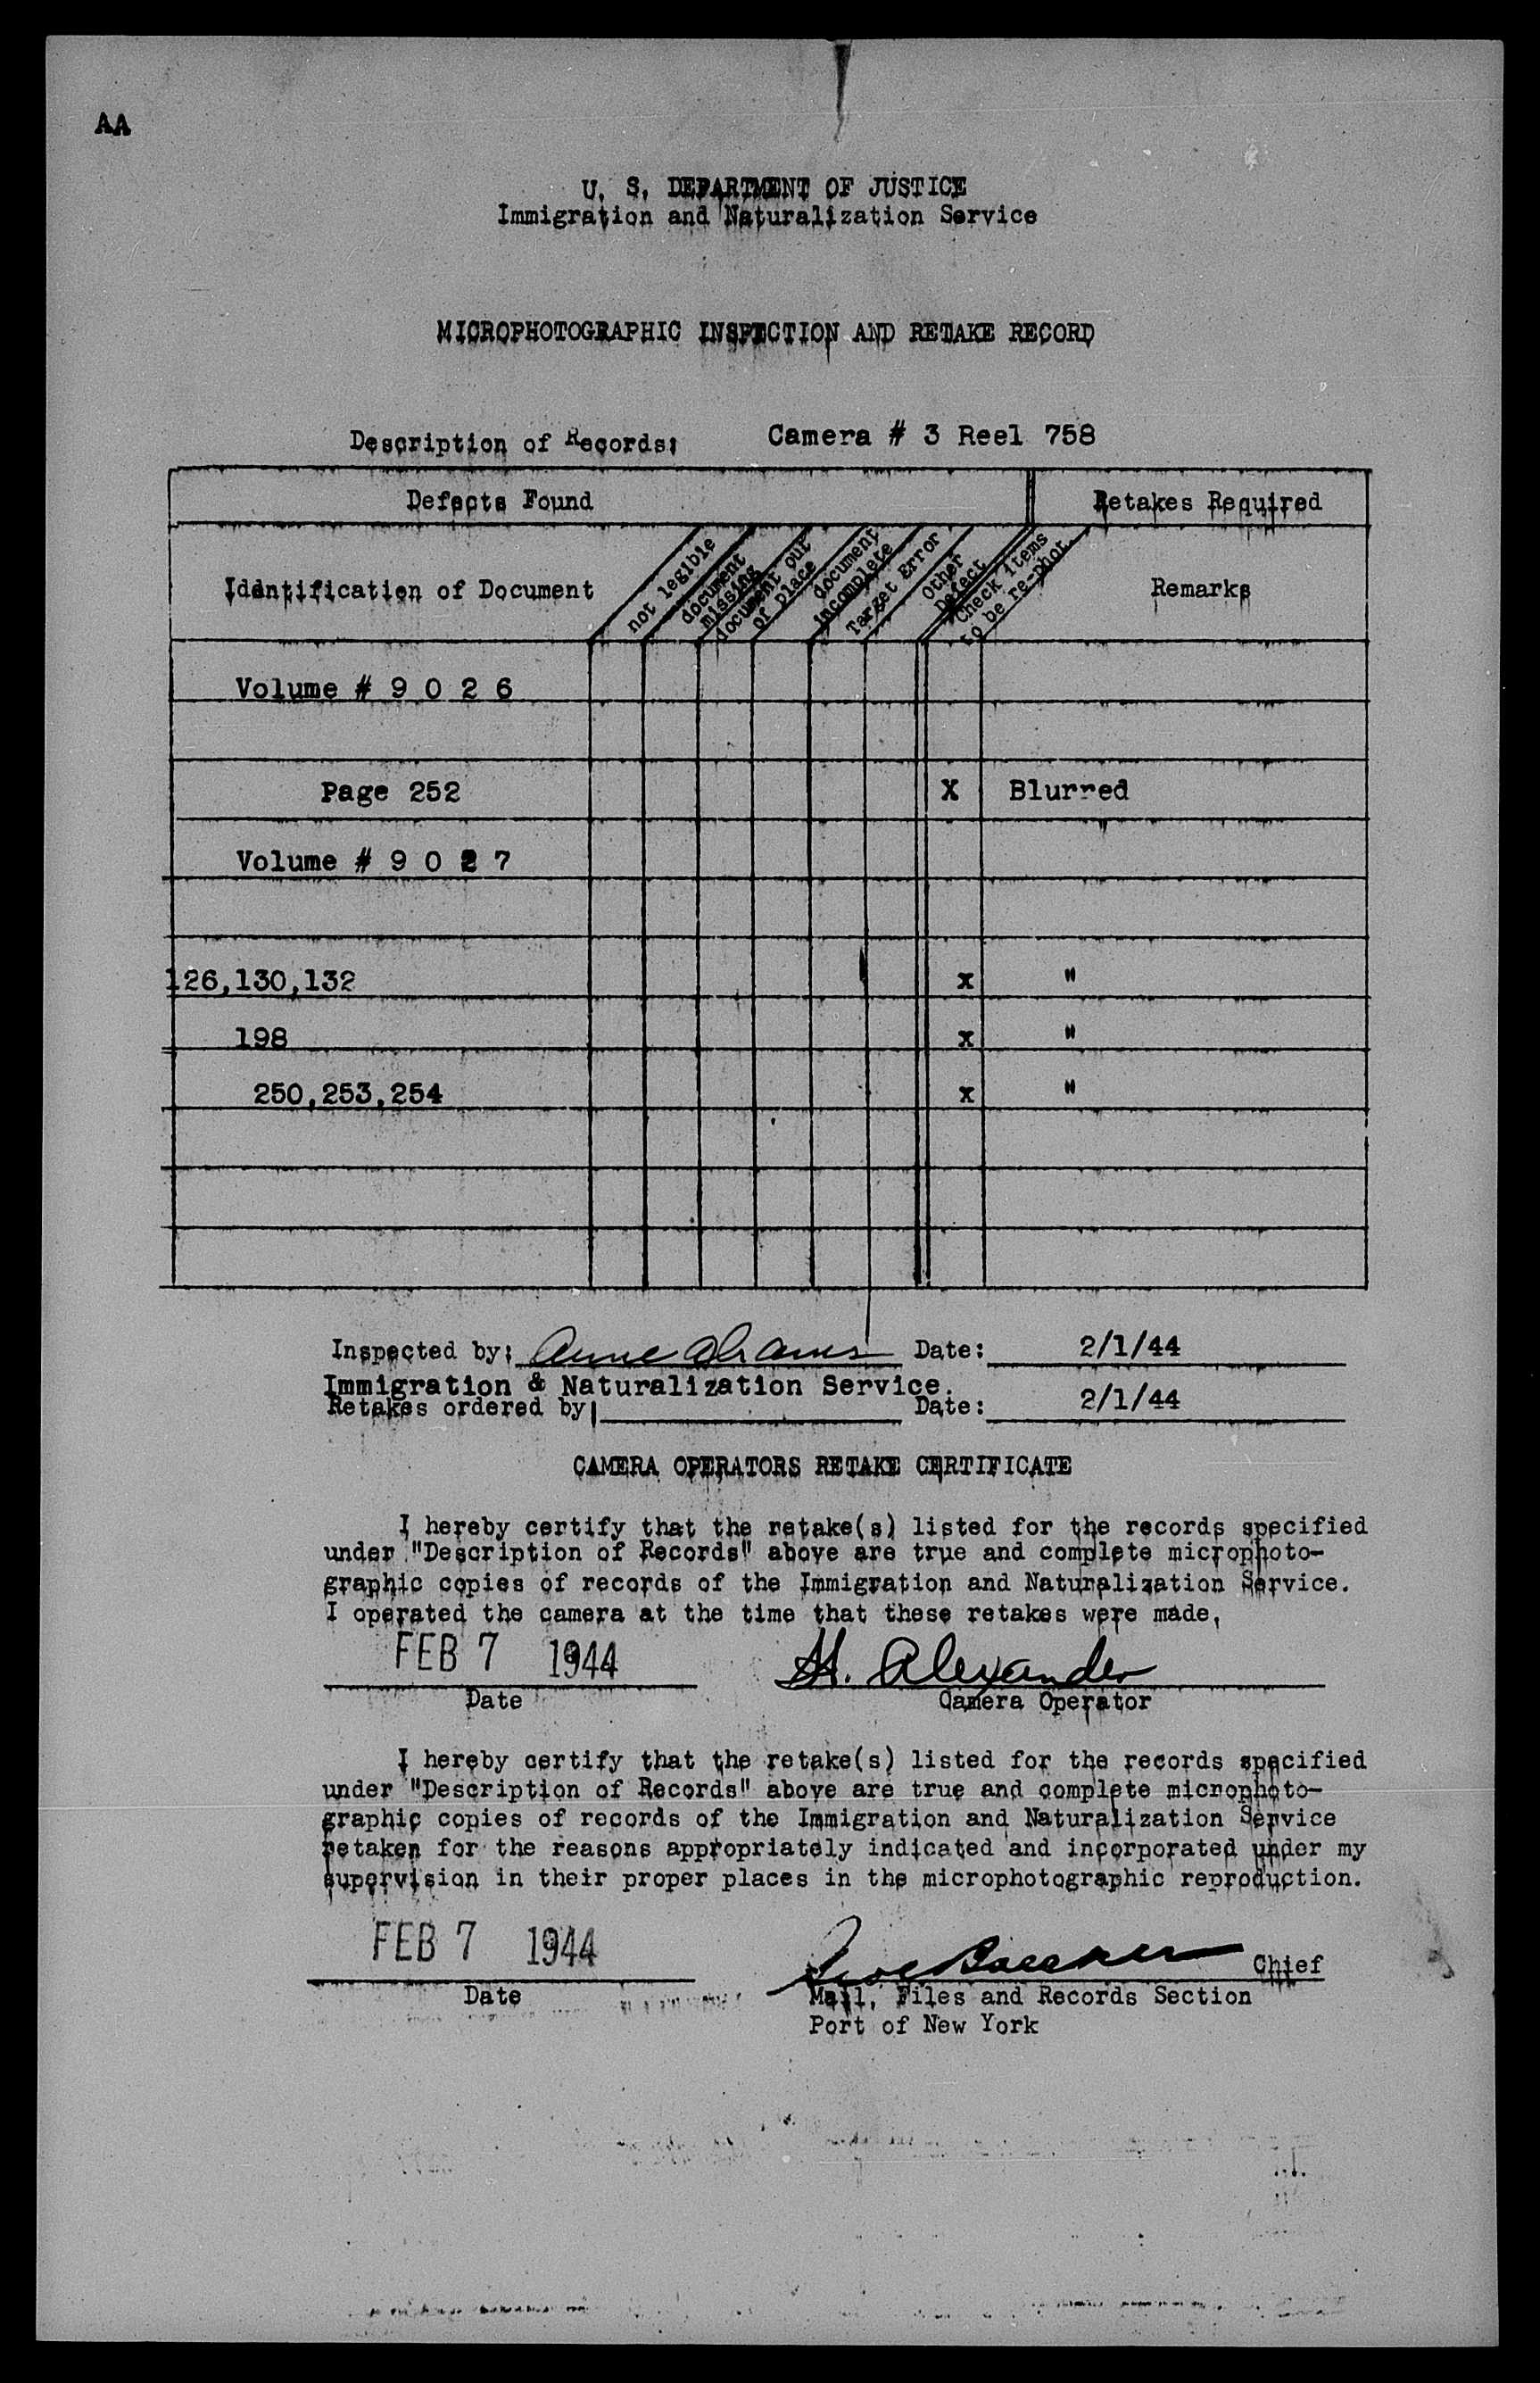 AA
U. S. DEPARTMENT OF JUSTICE
Immigration and Naturalization Service
MICROPHOTOGRAPHIC INSPECTION AND RETAKE RECORD
Description of Records: Camera # 3 Reel 758
Defects Found Retakes Required
Identification of Document
not legible
document
missing
document out
of place
document
incomplete
Target Error
Other
Defect
Check items
to be re-phot.
Remarks
Volume # 9 0 2 6
Page 252 X Blurred
Volume # 9 0 2 7
126,130,132 x "
198 x "
250,253,254 x "
Inspected by: Anne Abrams Date: 2/1/44
Immigration & Naturalization Service.
Retakes ordered by: Date: 2/1/44
CAMERA OPERATORS RETAKE CERTIFICATE
I hereby certify that the retake(s) listed for the records specified
under "Description of Records" above are true and complete microphoto-
graphic copies of records of the Immigration and Naturalization Service.
I operated the camera at the time that these retakes were made.
FEB 7 1944 H. Alexander
Date Camera Operator
I hereby certify that the retake(s) listed for the records specified
under "Description of Records" above are true and complete microphoto-
graphic copies of records of the Immigration and Naturalization Service
retaken for the reasons appropriately indicated and incorporated under my
supervision in their proper places in the microphotographic reproduction.
FEB 7 1944 Chief
Date Mail, Files and Records Section
Port of New York